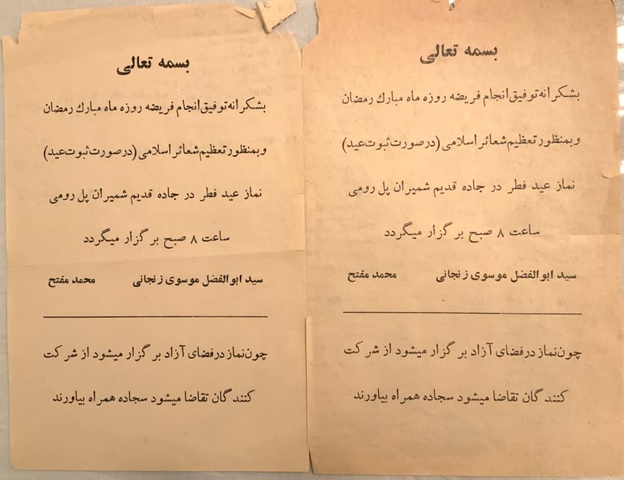 بسمه تعالی
بشکرانه توفیق انجام فریضه روزه ماه مبارك رمضان
وبمنظور تعظیم شعائر اسلامی (درصورت ثبوت عید)
نماز عید فطر در جاده قدیم شمیران پل رومی
ساعت ۸ صبح برگزار میگردد
سید ابوالفضل موسوی زنجانی محمد مفتح
چون نماز درفضای آزاد برگزار میشود از شرکت
کنندگان تقاضا میشود سجاده همراه بیاورند
بسمه تعالی
بشکرانه توفیق انجام فریضه روزه ماه مبارك رمضان
وبمنظور تعظیم شعائر اسلامی (درصورت ثبوت عید)
نماز عید فطر در جاده قدیم شمیران پل رومی
ساعت ۸ صبح برگزار میگردد
سید ابوالفضل موسوی زنجانی محمد مفتح
چون نماز درفضای آزاد برگزار میشود از شرکت
کنندگان تقاضا میشود سجاده همراه بیاورند